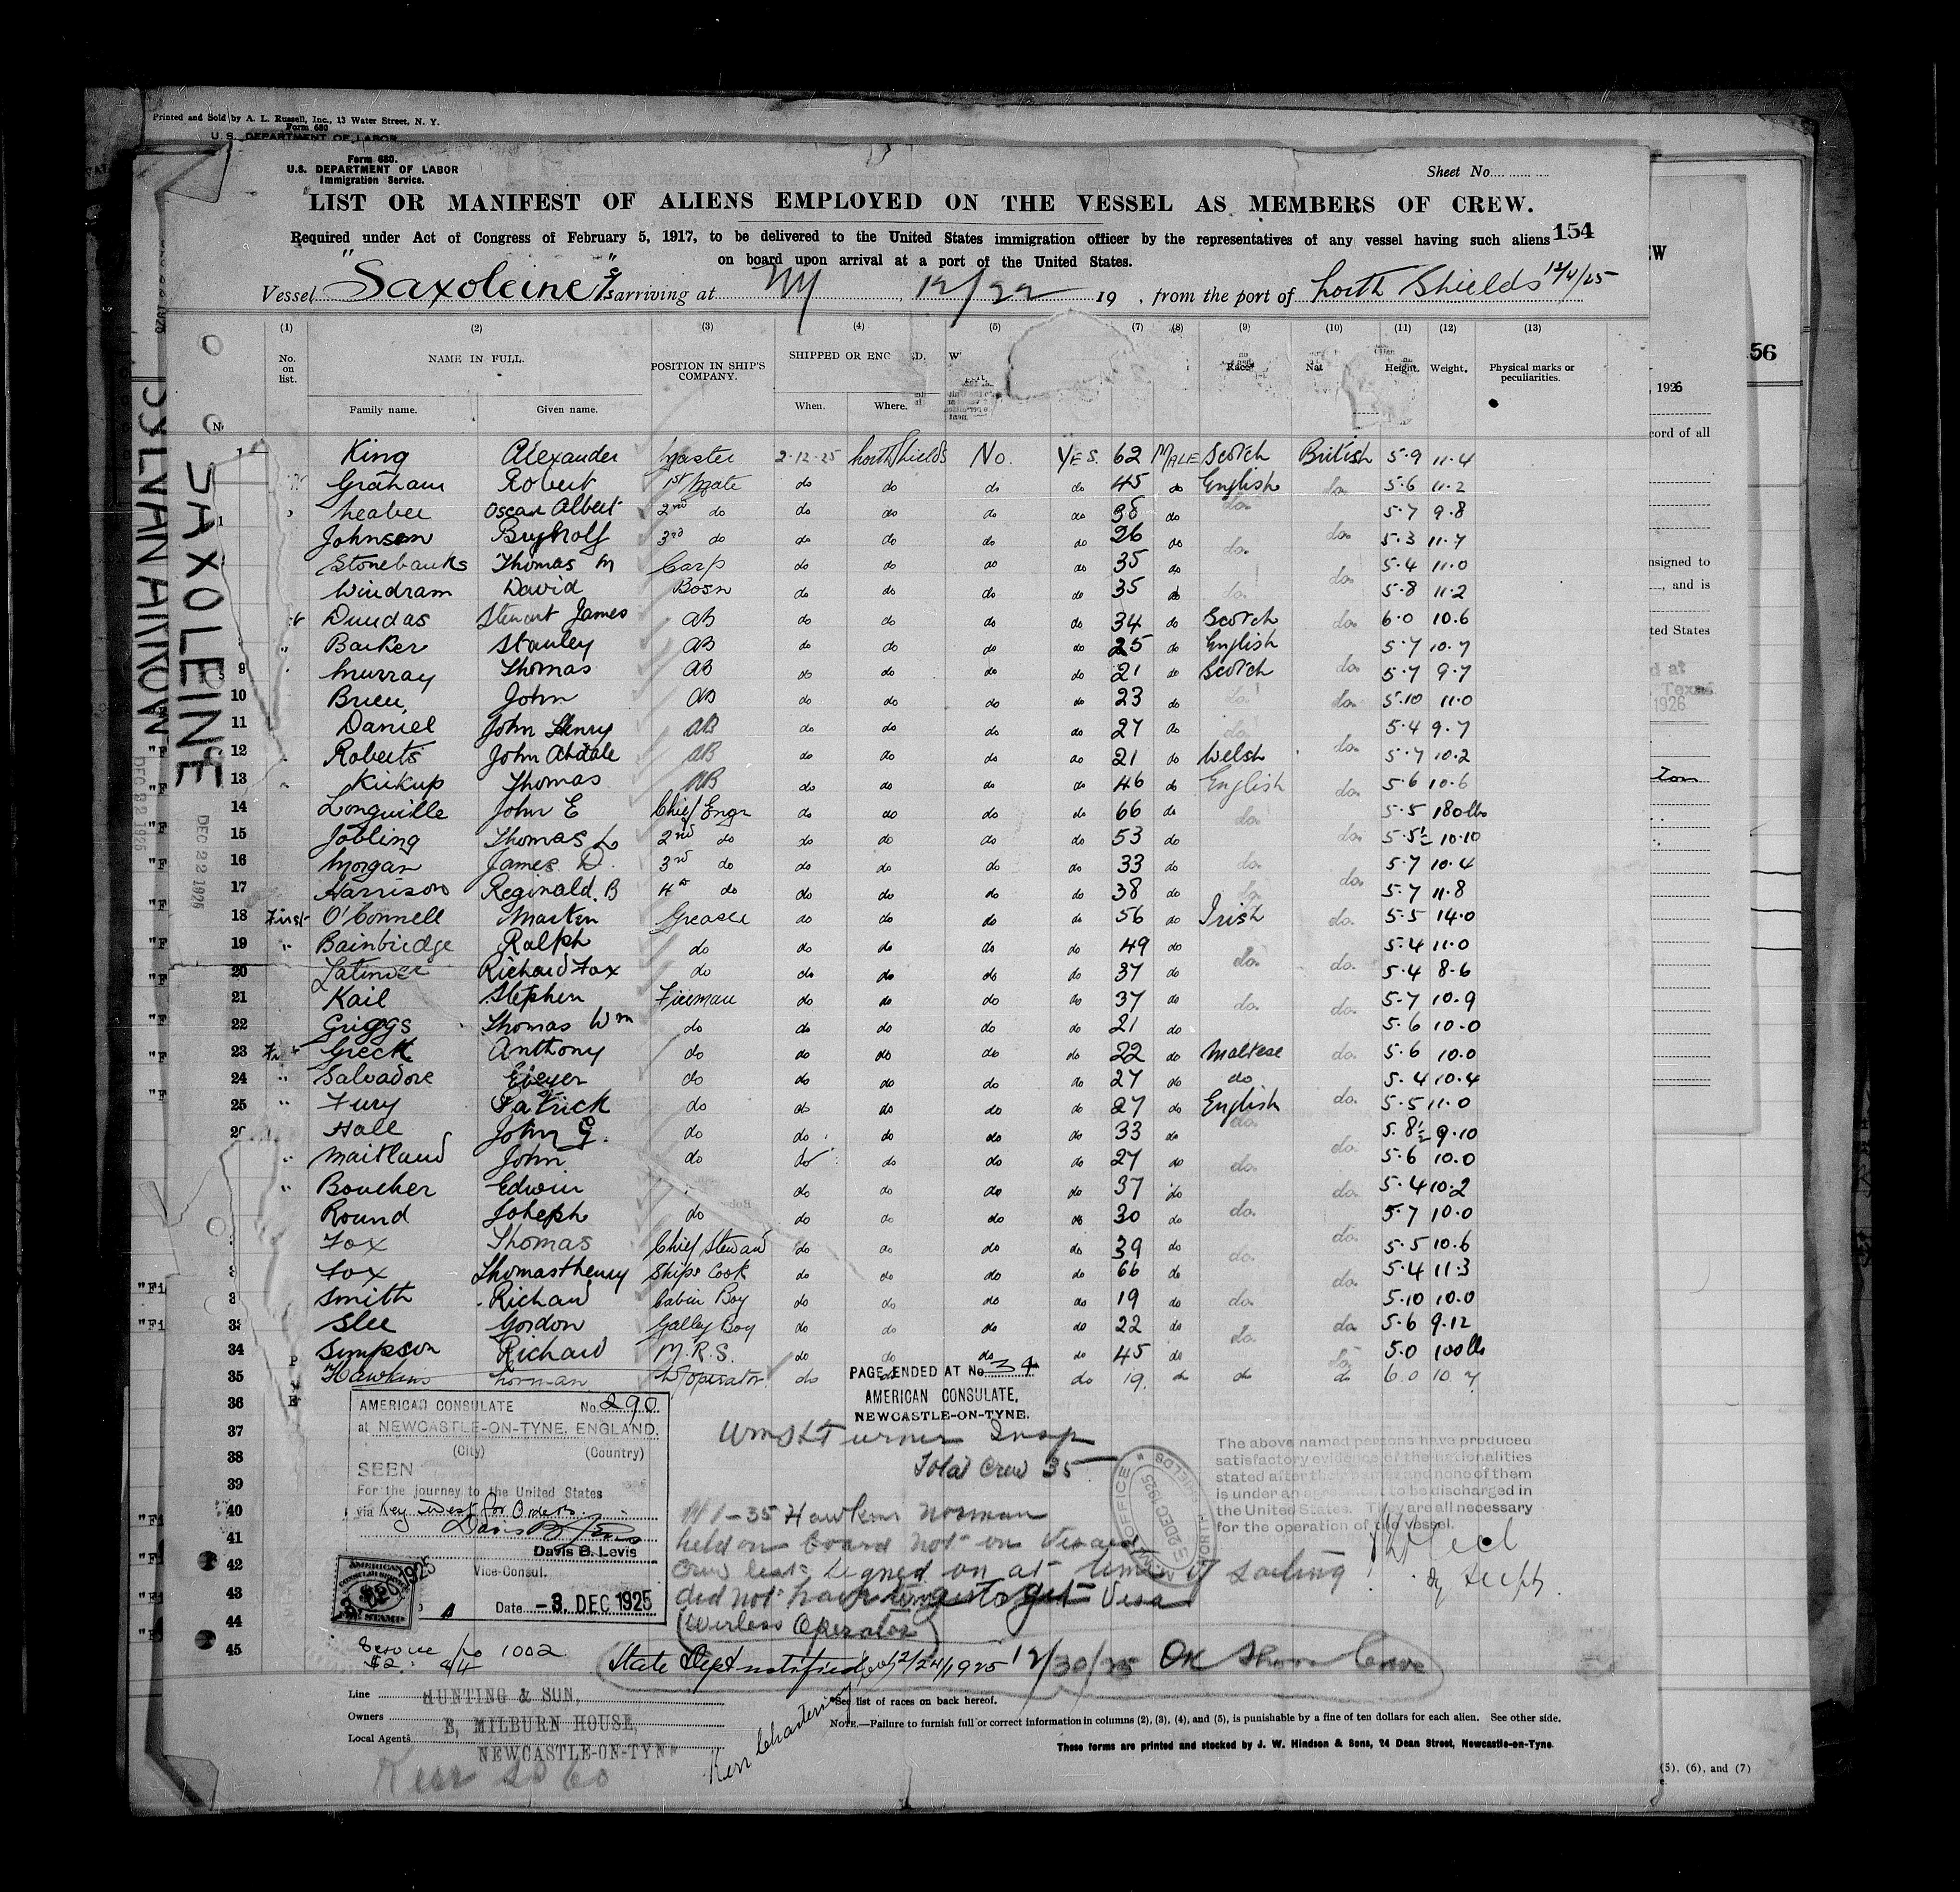 Printed and Sold by A. L. Russell, Inc., 13 Water Street, N. Y.
Form 680
U. S. DEPARTMENT OF LABOR
Form 680.
U.S. DEPARTMENT OF LABOR
Immigration Service.
Sheet No.
LIST OR MANIFEST OF ALIENS EMPLOYED ON THE VESSEL AS MEMBERS OF CREW.
154
Required under Act of Congress of February 5, 1917, to be delivered to the United States immigration officer by the representatives of any vessel having such aliens
on board upon arrival at a port of the United States.
Vessel "Saxoleine" arriving at NY, 12/22 19 , from the port of North Shields 12/4/25
(1) (2) (3) (4) (5) (7) (8) (9) (10) (11) (12) (13)
No. on list. NAME IN FULL. POSITION IN SHIP'S COMPANY. SHIPPED OR ENG D. Race Nat Height. Weight. Physical marks or peculiarities.
Family name. Given name. When. Where.
King Alexander Master 2-12-25 North Shields No. YES. 62 MALE Scotch British 5-9 11-4
Graham Robert 1st Mate do do do do 45 do English do 5-6 11-2
Oscar Albert 2nd do do do do do 38 do do 5-7 9-8
Johnson 3rd do do do do do 26 do do do 5-3 11-7
Stonebanks Thomas M Carp do do do do 35 do do 5-4 11-0
Windram David Bosn do do do do 35 do do 5-8 11-2
Dundas Stewart James AB do do do do 34 do Scotch do 6-0 10.6
Barker Stanley AB do do do do 25 do English 5-7 10-7
9 Murray Thomas AB do do do do 21 do Scotch do 5-7 9-7
10 John AB do do do do 23 do do do 5-10 11-0
11 Daniel John Henry AB do do do do 27 do do 5-4 9-7
12 Roberts John AB do do do do 21 do Welsh do 5-7 10-2
13 Kirkup Thomas AB do do do do 46 do English do 5-6 10-6
14 Longville John E Chief Engr do do do do 66 do do 5-5 180 lbs
15 Jobling Thomas L 2nd do do do do do 53 do do 5-5½ 10-10
16 Morgan James D. 3rd do do do do do 33 do do 5-7 10-4
17 Harrison Reginald. B 4th do do do do do 38 do do do 5-7 11-8
18 First O'Connell Martin Greaser do do do do 56 do Irish do 5-5 14-0
19 " Bainbridge Ralph do do do do do 49 do 5-4 11-0
20 Latimer Richard Fox do do do do do 37 do do do 5-4 8-6
21 Kail Stephen Fireman do do do do 37 do do do 5-7 10-9
22 Griggs Thomas Wm do do do do do 21 do 5-6 10-0
23 Greck Anthony do do do do do 22 do Maltese do 5-6 10.0
24 " Salvadore do do do do do 27 do do 5-4 10-4
25 " Fury Patrick do do do do do 27 do English do 5-5 11-0
Hall John G. do do do do do 33 do do 5-8½ 9-10
" Maitland John do do do do do 27 do do do 5-6 10.0
" Boucher Edwin do do do do 37 do do 5-4 10-2
Round Joheph do do do do do 30 do do 5-7 10.0
Fox Thomas Chief Steward do do do do 39 do do do 5-5 10.6
Fox Thomas Henry Ships Cook do do do do 66 do do 5-4 11-3
Smith Richard Cabin Boy do do do do 19 do do 5-10 10.0
Slee Gordon Galley Boy do do do do 22 do do 5-6 9-12
34 Simpson Richard M.R.S. do do do do 45 do do do 5.0 100 lbs
35 Hawkins Norman W/operator do do do 19. do do do 6.0 10.7
36
37
38
39
40
41
42
43
44
45
PAGE ENDED AT No. 34
AMERICAN CONSULATE,
NEWCASTLE-ON-TYNE.
AMERICAN CONSULATE No. 290
at NEWCASTLE-ON-TYNE, ENGLAND.
(City) (Country)
SEEN
For the journey to the United States
via Key West for Orders
Davis B. Levis
Vice-Consul.
Date -3. DEC 1925
Turner Insp
Total Crew 35
35 Hawkins Norman
held on board not on Visaed
Crew list. Signed on at time of sailing
did not have time to get Visa
(Wireless Operator)
The above named persons have produced
satisfactory evidence of the nationalities
stated after their names and none of them
is under an agreement to be discharged in
the United States. They are all necessary
for the operation of the vessel.
Service No 1002
$2.
State Dept notified 12/24/1925 12/30/25 OK Shore Leave
Line HUNTING & SON,
Owners E, MILBURN HOUSE,
Local Agents NEWCASTLE-ON-TYNE
Kerr Chartering
*See list of races on back hereof.
NOTE.—Failure to furnish full or correct information in columns (2), (3), (4), and (5), is punishable by a fine of ten dollars for each alien. See other side.
These forms are printed and stocked by J. W. Hindson & Sons, 24 Dean Street, Newcastle-on-Tyne.
SAXOLEINE
DEC 22 1925
DEC 22 1925
56
, 1926
cord of all
nsigned to
, and is
ted States
1926
(5), (6), and (7)